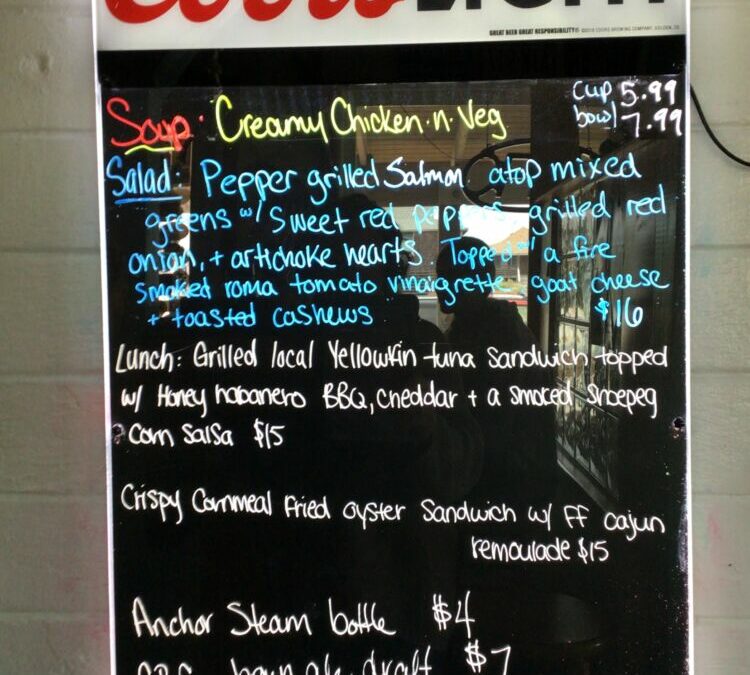 Coors LIGHT
GREAT BEER GREAT RESPONSIBILITY® ©2018 COORS BREWING COMPANY, GOLDEN, CO
Soup: Creamy Chicken·n·Veg
cup 5.99
bowl 7.99
Salad: Pepper grilled Salmon atop mixed
greens w/ Sweet red peppers, grilled red
onion, + artichoke hearts. Topped w/ a fire
smoked roma tomato vinaigrette, goat cheese
+ toasted cashews $16
Lunch: Grilled local Yellowfin tuna Sandwich topped
w/ Honey habanero BBQ, cheddar + a smoked Shoepeg
Corn Salsa $15
Crispy Cornmeal fried oyster Sandwich w/ FF cajun
remoulade $15
Anchor Steam bottle $4
draft $7